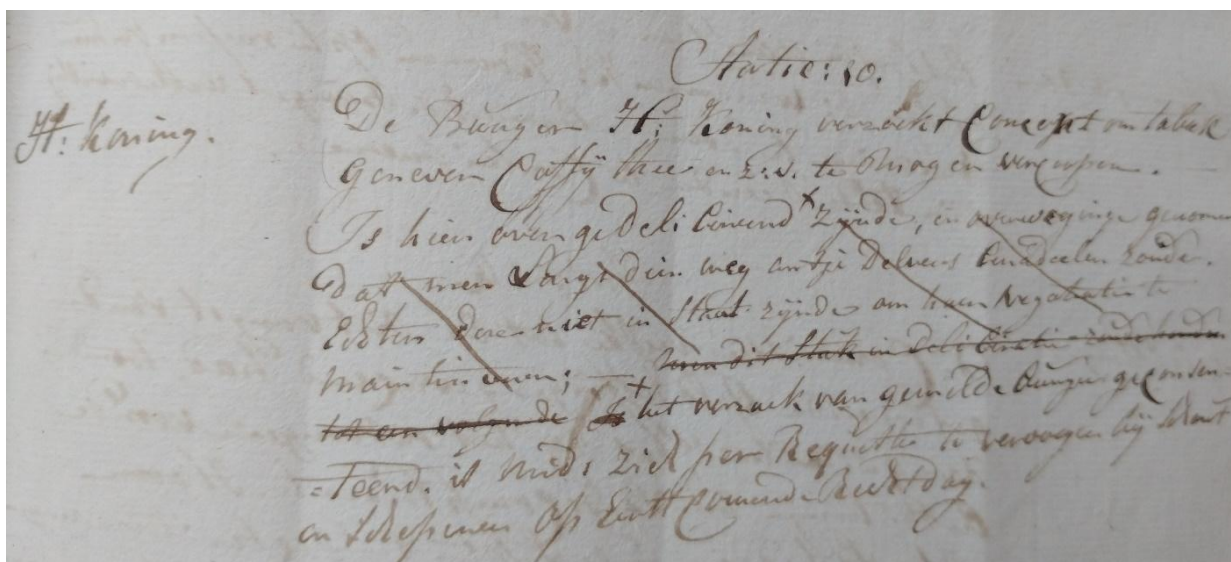 Statie: 10.
H: Koning.
De Burger H: Koning verzoekt Concept om tabak
Genever Coffij thee en z: v. te Mogen vercoopen.
Is hier over gedelibereerd zijnde, in overweginge genomen
dat men langs dien weg antje benadeelen zoude.
Echter deze niet in Staat zijnde om haar Negotiatie te
maintineeren; — men dit Stuk in deliberatie zoude houden
tot een volgende Is + het verzoek van gemelde Burger geconsen=
=teerd. is mids zich per Requeste te vervoegen bij Schout
en Schepenen op Eerstcomende Rechtdag.